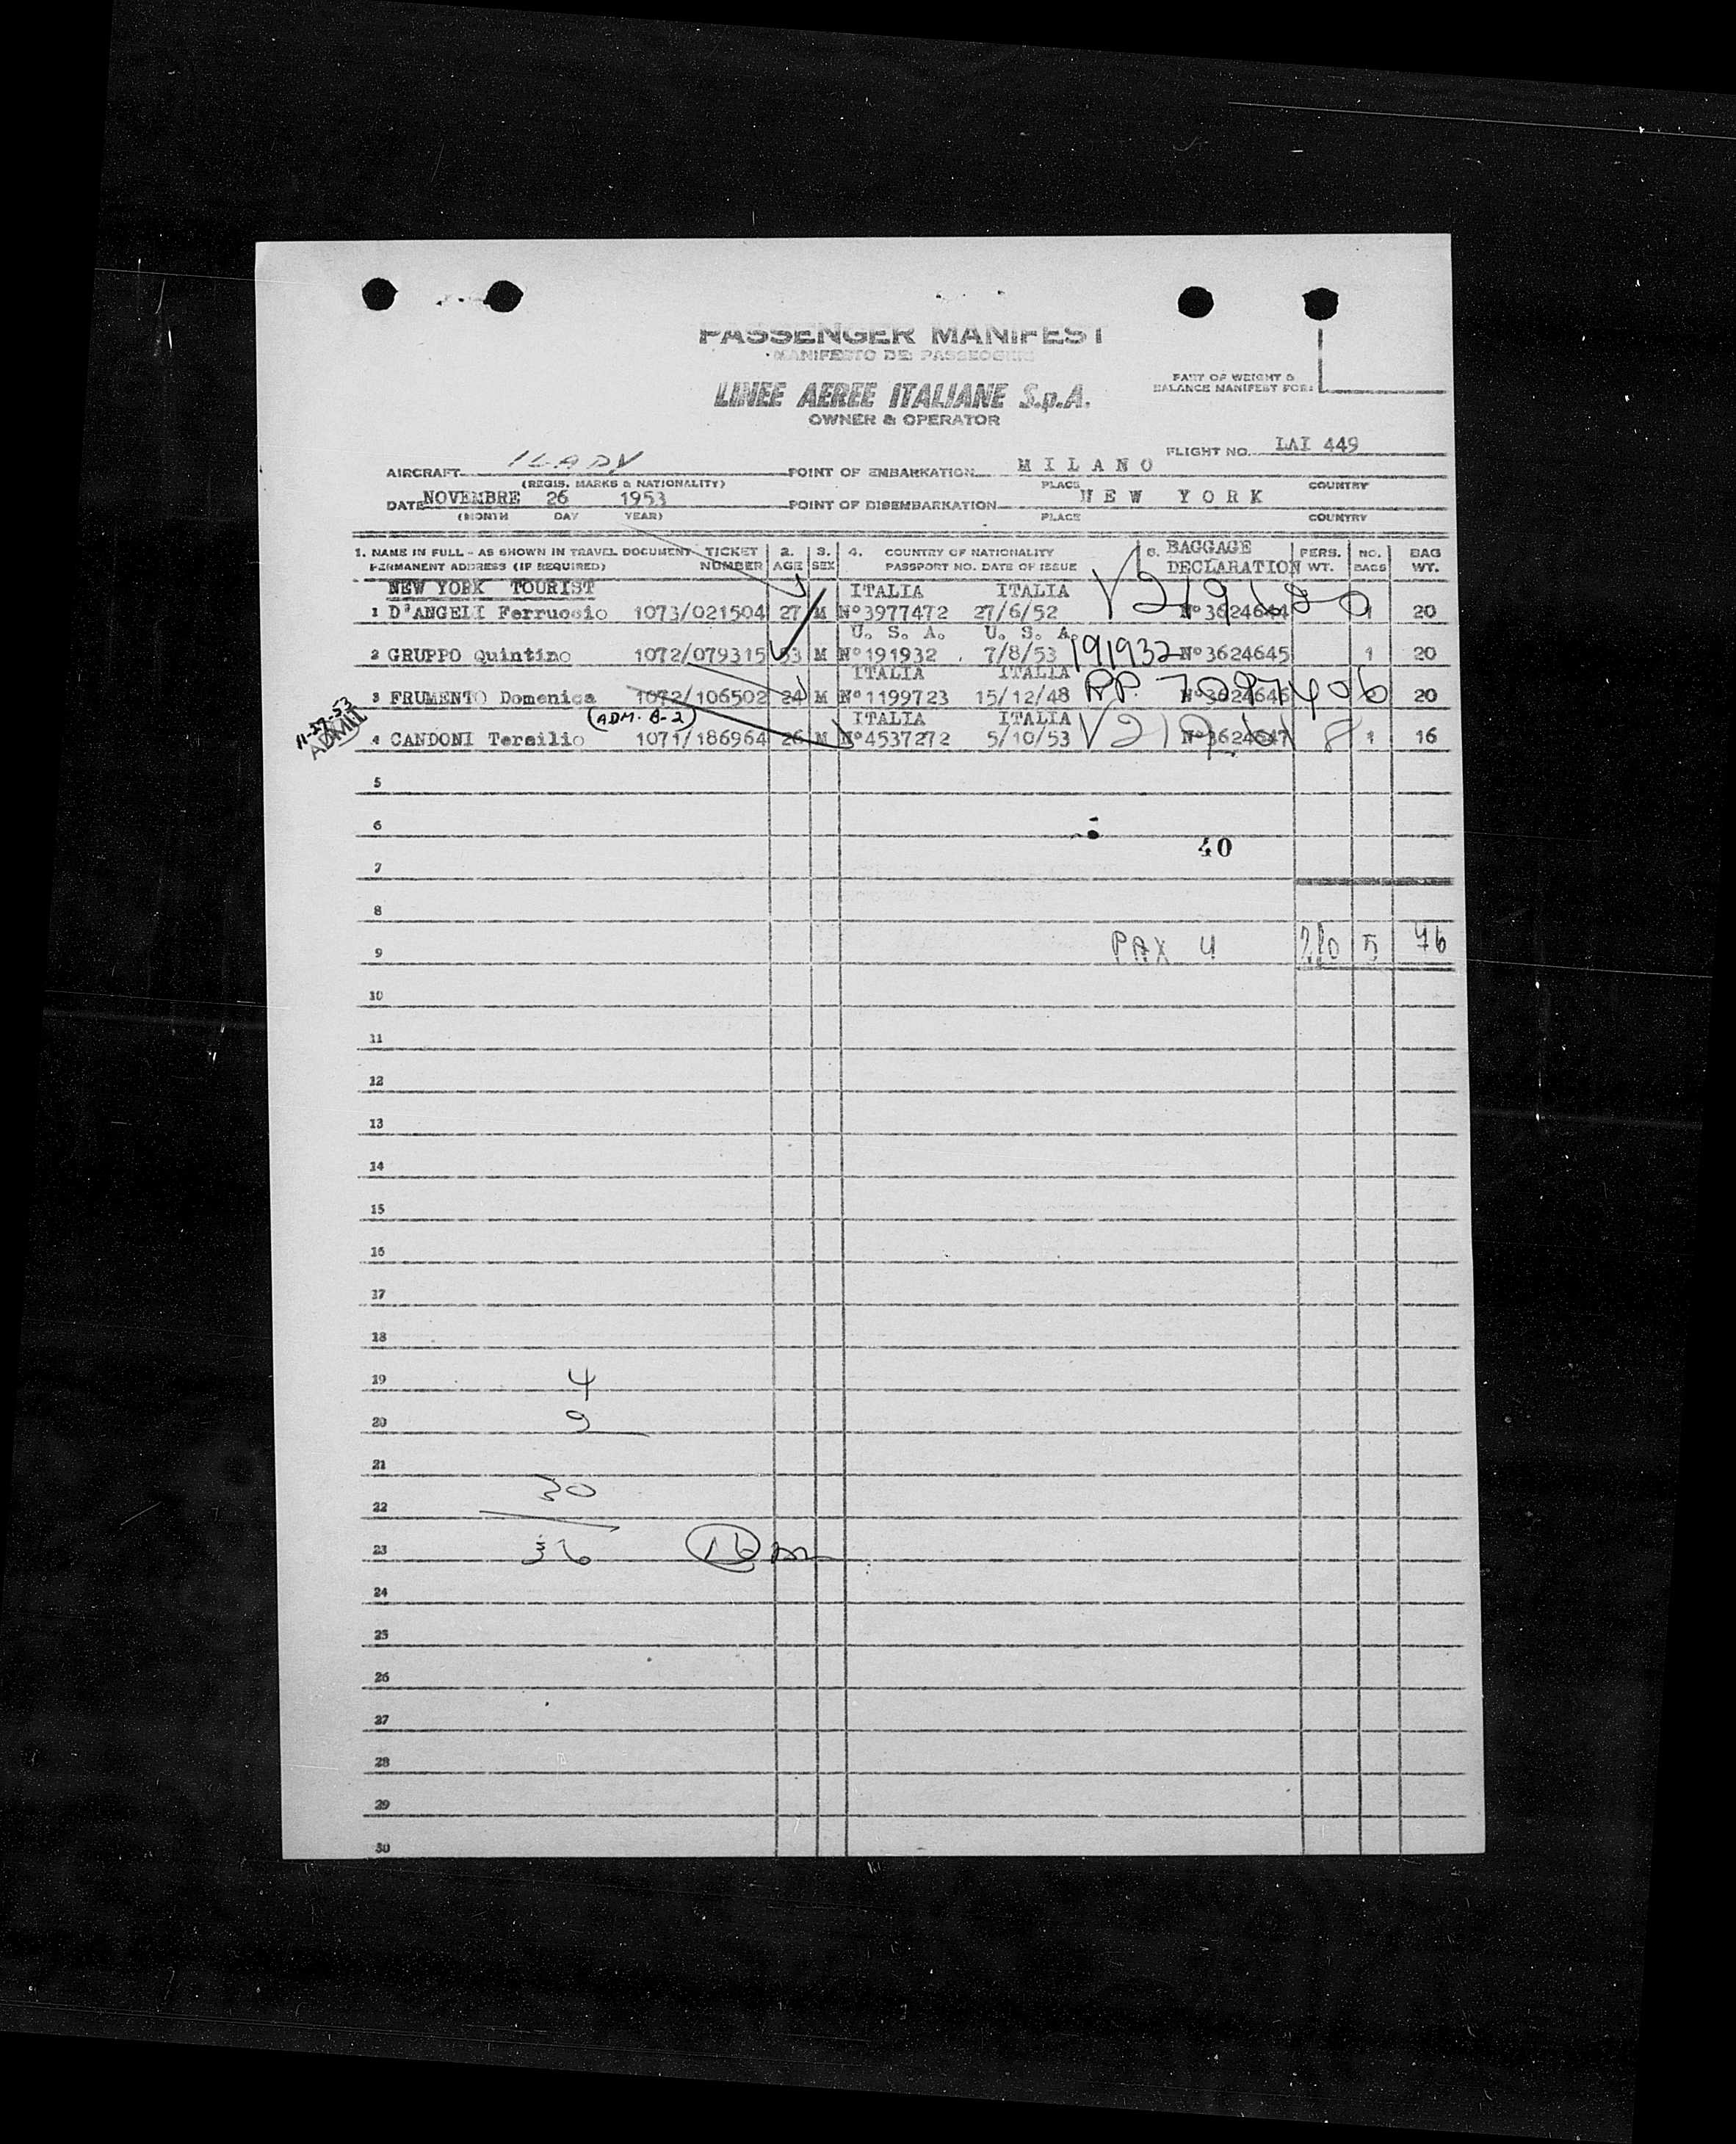 PASSENGER MANIFEST
MANIFESTO DEI PASSEGGERI
LINEE AEREE ITALIANE S.p.A.
OWNER & OPERATOR
PART OF WEIGHT &
BALANCE MANIFEST FOR:
FLIGHT NO. LAI 449
AIRCRAFT ILADV POINT OF EMBARKATION MILANO
(REGIS. MARKS & NATIONALITY) PLACE COUNTRY
DATE NOVEMBRE 26 1953 POINT OF DISEMBARKATION NEW YORK
(MONTH DAY YEAR) PLACE COUNTRY
1. NAME IN FULL - AS SHOWN IN TRAVEL DOCUMENT TICKET 2. 3. 4. COUNTRY OF NATIONALITY 6. BAGGAGE PERS. NO. BAG
PERMANENT ADDRESS (IF REQUIRED) NUMBER AGE SEX PASSPORT NO. DATE OF ISSUE DECLARATION WT. BAGS WT.
NEW YORK TOURIST ITALIA ITALIA
1 D'ANGELI Ferruccio 1073/021504 27 M Nº3977472 27/6/52 Nº3624644 1 20
U. S. A. U. S. A.
2 GRUPPO Quintino 1072/079315 53 M Nº191932 7/8/53 191932 Nº3624645 1 20
ITALIA ITALIA
3 FRUMENTO Domenica 1072/106502 24 M Nº1199723 15/12/48 Nº3624646 20
11-27-53
ADMIT
(ADM. B-2) ITALIA ITALIA
4 CANDONI Tersilio 1071/186964 26 M Nº4537272 5/10/53 Nº3624647 1 16
5
6
40
7
8
9 PAX 4 5 76
10
11
12
13
14
15
16
17
18
19 4
20 2
21
30
22
23 36 16
24
25
26
27
28
29
30